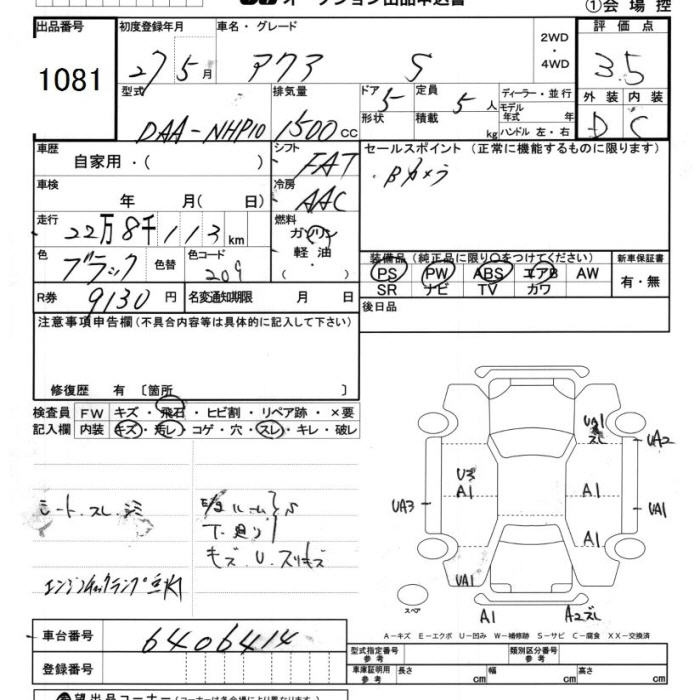 ①会場控
出品番号 初度登録年月 車名・グレード 2WD・4WD 評価点
1081 27 5月 アクア S 3.5
型式 排気量 ドア 5 定員 5人 ディーラー・並行 外装 内装
形状 積載 kg モデル年式 年
DAA-NHP10 1500cc ハンドル 左・右 D C
車歴 自家用・( ) シフト FAT セールスポイント(正常に機能するものに限ります)
車検 年 月( 日) 冷房 AAC ・Bカメラ
走行 22万8千113km 燃料 ガソリン
軽油
・( )
色 ブラック 色替 色コード 209 装備品(純正品に限り○をつけてください) 新車保証書
PS PW ABS エアB AW 有・無
SR ナビ TV カワ
R券 9130円 名変通知期限 月 日 後日品
注意事項申告欄(不具合内容等は具体的に記入して下さい)
修復歴 有 〔箇所 〕
検査員 FW キズ・飛石・ヒビ割・リペア跡・×要
記入欄 内装 キズ・汚レ・コゲ・穴・スレ・キレ・破レ
シート.スレ.シミ
下廻り S
キズ.U.スリキズ
UA1
スレ
UA2
U3
A1
A1
UA3
UA1
A1
UA1
スペア
A1
A2スレ
A-キズ E-エクボ U-凹み W-補修跡 S-サビ C-腐食 XX-交換済
車台番号 6406414 型式指定番号 参考 類別区分番号 参考
登録番号 車庫証明用 参考 長さ cm 幅 cm 高さ cm